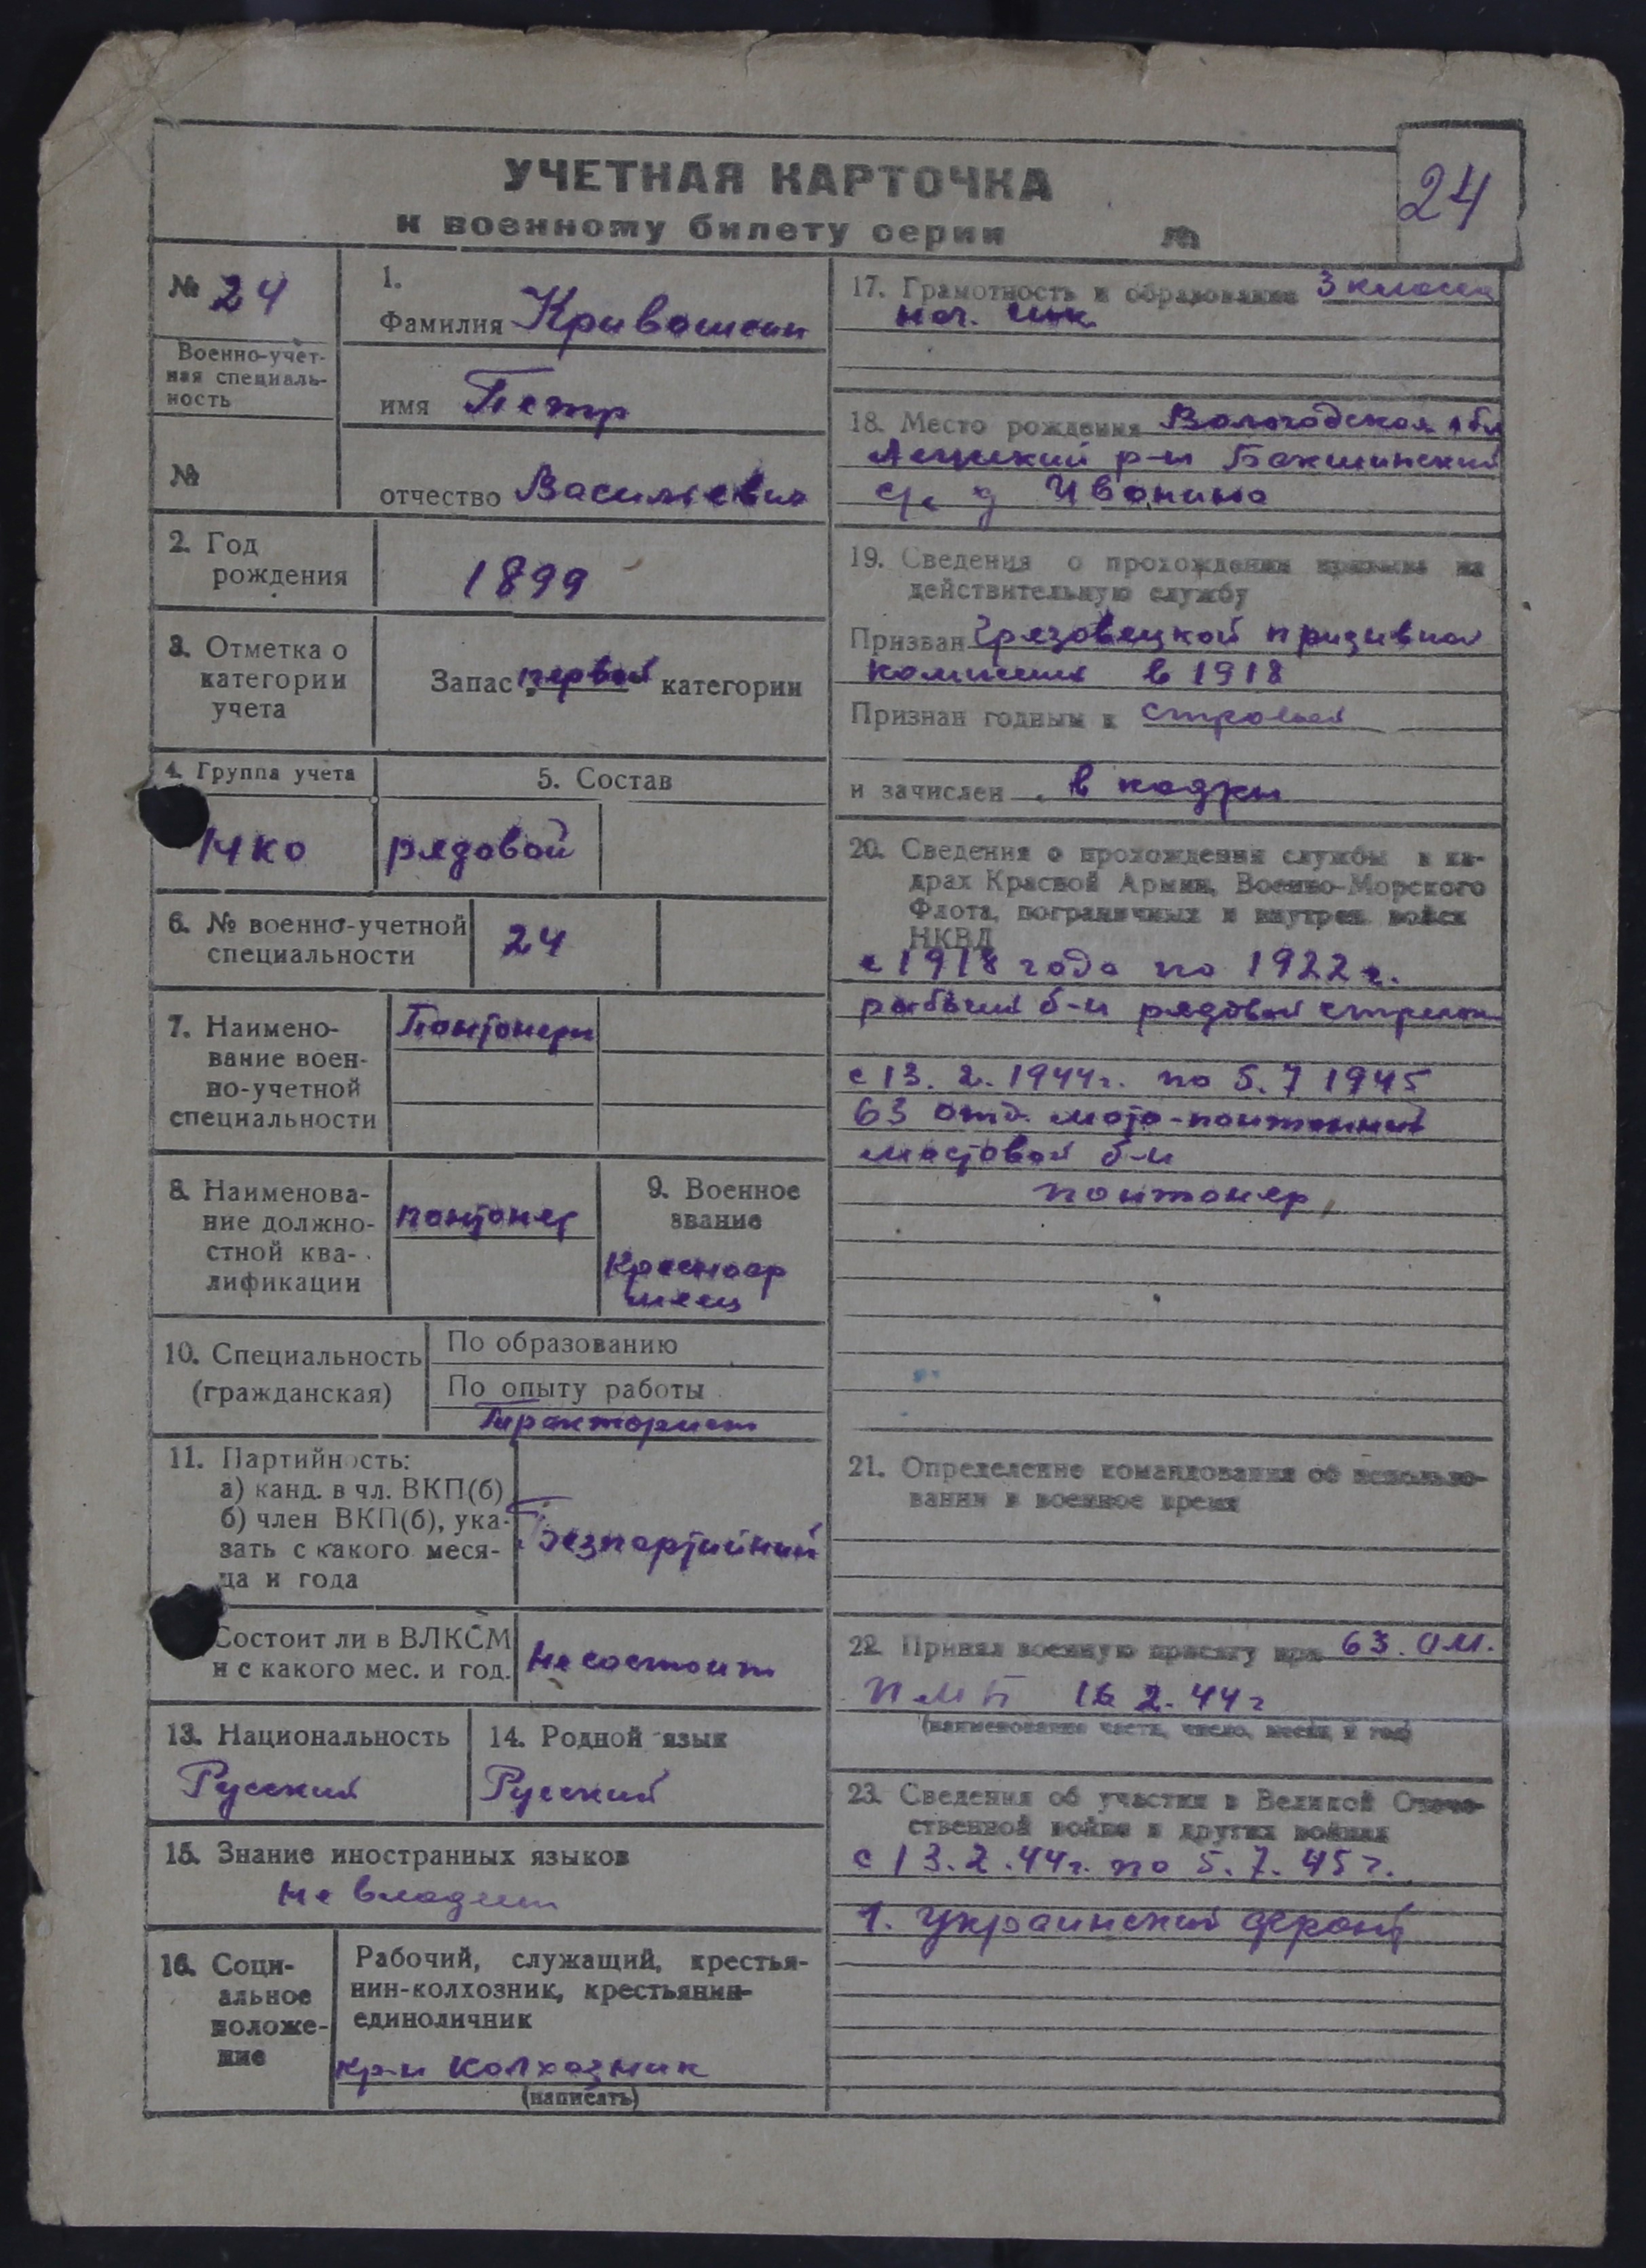 УЧЕТНАЯ КАРТОЧКА
к военному билету серии №
24
№ 24
Военно-учет-
ная специаль-
ность
№
1.
Фамилия Кривошеин
имя Петр
отчество Васильевич
2. Год
рождения
1899
3. Отметка о
категории
учета
Запас первой категории
4. Группа учета
5. Состав
рядовой
6. № военно-учетной
специальности
24
7. Наимено-
вание воен-
но-учетной
специальности
Понтонеры
8. Наименова-
ние должно-
стной ква-
лификации
понтонер
9. Военное
звание
Красноар
меец
10. Специальность
(гражданская)
По образованию
По опыту работы
Тракторист
11. Партийность:
а) канд. в чл. ВКП(б)
б) член ВКП(б), ука-
зать с какого меся-
ца и года
Безпартийный
Состоит ли в ВЛКСМ
и с какого мес. и год.
Не состоит
13. Национальность
Русский
14. Родной язык
Русский
15. Знание иностранных языков
Не владеет
16. Соци-
альное
положе-
ние
Рабочий, служащий, крестья-
нин-колхозник, крестьянин-
единоличник
кр-н колхозник
(написать)
17. Грамотность и образование 3 класса
нач. шк.
18. Место рождения Вологодская обл
р-н
с/с д Иванино
19. Сведения о прохождении призыва на
действительную службу
Призван Грязовецкой призывной
комиссией в 1918
Признан годным к строевой
и зачислен в кадры
20. Сведения о прохождении службы в ка-
драх Красной Армии, Военно-Морского
Флота, пограничных и внутрен. войск
НКВД
с 1918 года по 1922 г.
рабочий б-н рядовой стрелок
с 13.2.1944г. по 5.7 1945
63 отд. мото-понтонный
мостовой б-н
понтонер
21. Определение командования об использо-
вании в военное время
22. Принял военную присягу при 63. ОМ.
ПМБ 16 2.44г
(наименование части, число, месяц и год)
23. Сведения об участии в Великой Отече-
ственной войне и других войнах
с 13.2.44г. по 5.7.45г.
1. Украинский фронт